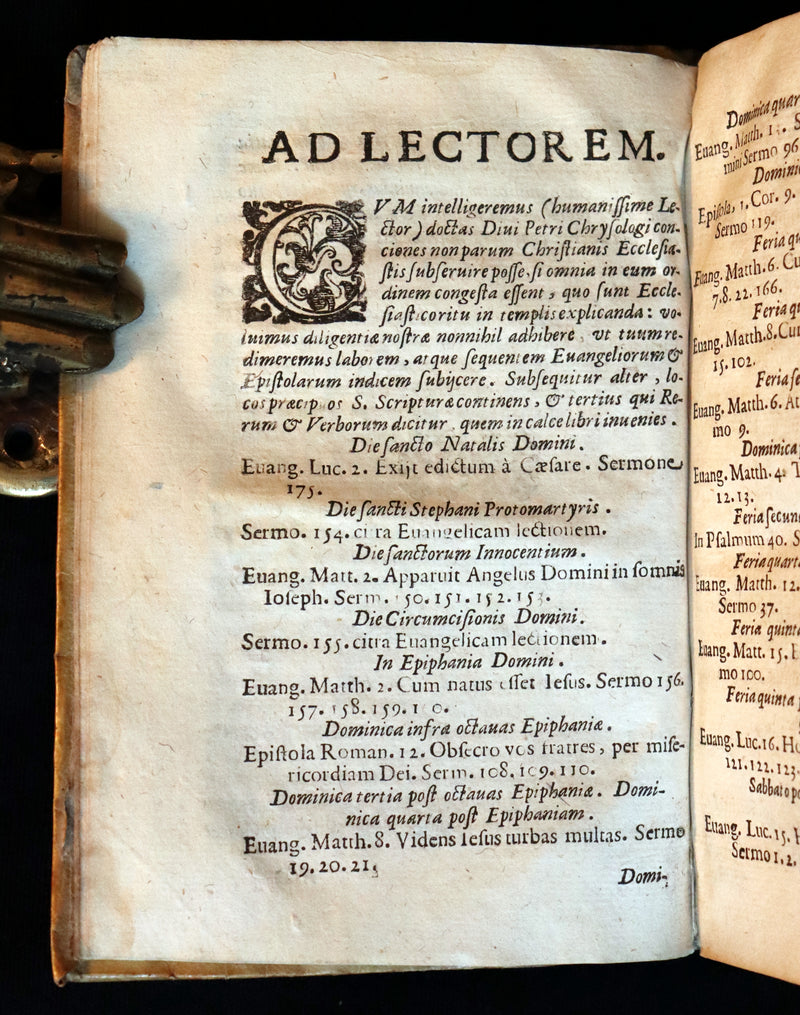 AD LECTOREM.
CVM intelligeremus (humanissime Le-
ctor) doctas Diui Petri Chrysologi con-
ciones non parum Christianis Ecclesia-
stis subseruire posse, si omnia in eum or-
dinem congesta essent, quo sunt Eccle-
siasticoritu in templis explicanda: vo-
luimus diligentiæ nostræ nonnihil adhibere, vt tuum re-
dimeremus laborem, atque sequentem Euangeliorum &
Epistolarum indicem subijcere. Subsequitur alter, lo-
cos præcipuos S. Scripturæ continens, & tertius qui Re-
rum & Verborum dicitur, quem in calce libri inuenies.
Die sancto Natalis Domini.
Euang. Luc. 2. Exijt edictum à Cæsare. Sermone
175.
Die sancti Stephani Protomartyris.
Sermo. 154. citra Euangelicam lectionem.
Die sanctorum Innocentium.
Euang. Matt. 2. Apparuit Angelus Domini in somnis
Ioseph. Serm. 150. 151. 152. 153.
Die Circumcisionis Domini.
Sermo. 155. citra Euangelicam lectionem.
In Epiphania Domini.
Euang. Matth. 2. Cum natus esset Iesus. Sermo 156.
157. 158. 159. 160.
Dominica infra octauas Epiphaniæ.
Epistola Roman. 12. Obsecro vos fratres, per mise-
ricordiam Dei. Serm. 108. 109. 110.
Dominica tertia post octauas Epiphaniæ. Domi-
nica quarta post Epiphaniam.
Euang. Matth. 8. Videns Iesus turbas multas. Sermo
19. 20. 21.
Domi-
Dominica quar
Euang. Matth. 13. S
mini Sermo 96
Domini
Epistola, 1. Cor. 9.
Sermo 119.
Feria qu
Euang. Matth. 6. Cu
7. 8. 22. 166.
Feria qu
Euang. Matth. 8. Cum
15. 102.
Feria se
Euang. Matth. 6. At
mo 9.
Dominica
Euang. Matth. 4. T
12. 13.
Feria secun
In Psalmum 40. S
Feria quart
Euang. Matth. 12.
Sermo 37.
Feria quint
Euang. Matt. 15. E
mo 100.
Feria quinta
Euang. Luc. 16. Ho
121. 122. 123.
Sabbato po
Euang. Luc. 15. H
Sermo 1. 2.